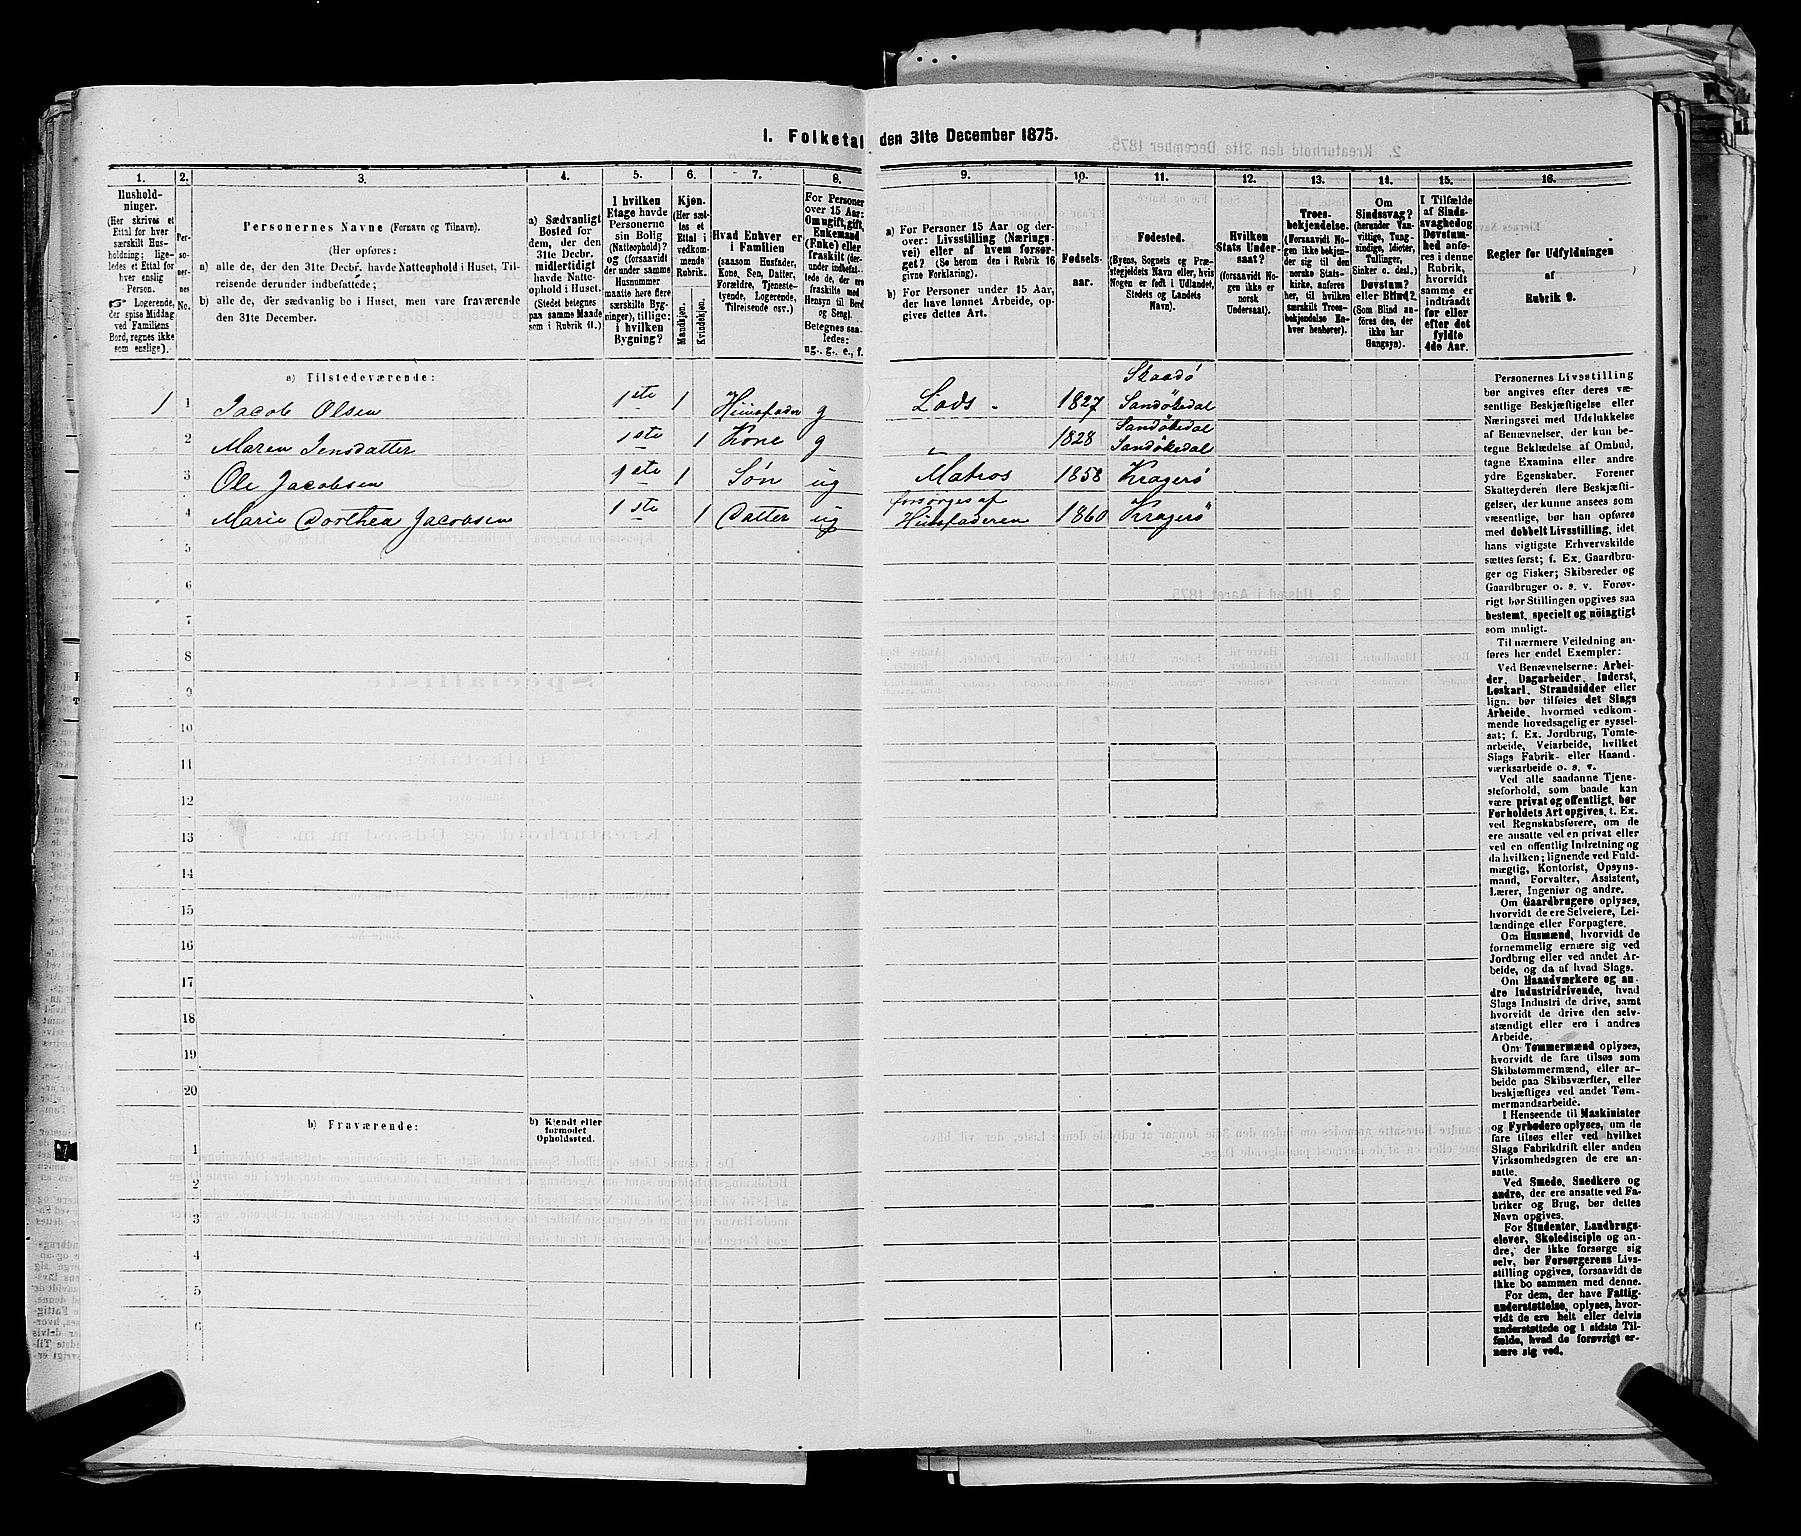 1. Folketal den 31te December 1875.
1. 2. 3. 4. 5. 6. 7. 8. 9. 10. 11. 12. 13. 14. 15. 16.
Hushold-
ninger.
(Her skrives et
Ettal for hver
særskilt Hus-
holdning; lige-
ledes et Ettal for
enslig
Person.
☞ Logerende,
der spise Middag
ved Familiens
Bord, regnes ikke
som enslige).
Per-
so-
ner-
nes
No.
Personernes Navne (Fornavn og Tilnavn).
(Her opføres:
a) alle de, der den 31te Decbr. havde Natteophold i Huset, Til-
reisende derunder indbefattede;
b) alle de, der sædvanlig bo i Huset, men vare fraværende
den 31te December.
a) Sædvanligt
Bosted for
dem, der den
31te Decbr.
midlertidigt
havde Natte-
ophold i Huset.
(Stedet betegnes
paa samme Maade
som i Rubrik 11.)
I hvilken
Etage havde
Personerne
sin Bolig
(Natteophold)?
og (forsaavidt
der under samme
Husnummer
maatte høre flere
særskilte Byg-
ninger), tillige:
i hvilken
Bygning?
Kjøn.
(Her sæt-
tes et
Ettal i
vedkom-
mende
Rubrik.
Mandkjøn.
Kvindekjøn.
Hvad Enhver er
i Familien
(saasom Husfader,
Kone, Søn, Datter,
Forældre, Tjeneste-
tyende, Logerende,
Tilreisende osv.)
For Personer
over 15 Aar:
Om ugift, gift,
Enkemand
(Enke) eller
fraskilt (der-
under indbefat-
tede de, der ere
fraskilte med
Hensyn til Bord
og Seng).
Betegnes saa-
ledes:
ug., g., e., f.
a) For Personer 15 Aar og der-
over: Livsstilling (Nærings-
vei) eller af hvem forsør-
get? (Se herom den i Rubrik 16
givne Forklaring).
b) For Personer under 15 Aar,
der have lønnet Arbeide, op-
gives dettes Art.
Fødsels-
aar.
Fødested.
(Byens, Sognets og Præ-
stegjeldets Navn eller, hvis
Nogen er født i Udlandet,
Stedets og Landets
Navn).
Hvilken
Stats Under-
saat?
(forsaavidt No-
gen ikke er
norsk
Undersaat).
Troes-
bekjendelse.
(Forsaavidt No-
gen ikke bekjen-
der sig til den
norske Stats-
kirke, anføres
her, til hvilken
særskilt Troes-
bekjendelse En-
hver henhører).
Om
Sindssvag?
(herunder Van-
vittige, Tung-
sindige, Idioter,
Tullinger,
Sinker o. desl.)
Døvstum?
eller Blind?
(Som Blind an-
føres den, der
ikke har
Gangsyn).
I Tilfælde
af Sinds-
svaghed og
Døvstum-
hed anfø-
res i denne
Rubrik,
hvorvidt
samme er
indtraadt
før eller
efter det
fyldte
4de Aar.
Regler for Udfyldningen
af
Rubrik 9.
a) Tilstedeværende:
Skaadø
1 1 Jacob Olsen 1ste 1 Huusfader g Lods 1827 Sandökedal
Sandökedal
2 Maren Jensdatter 1ste 1 Kone g 1828 Sandökedal
3 Ole Jacobsen 1ste 1 Søn ug Matros 1858 Kragerö
forsörges af
4 Marie Dorthea Jacobsen 1ste 1 Datter ug Huusfaderen 1860 Kragerö
5
6
7
8
9
10
11
12
13
14
15
16
17
18
19
20
b) Fraværende:
b) Kjendt eller
formodet
Opholdssted.
1
2
3
4
5
6
Personernes Livsstilling
bør angives efter deres væ-
sentlige Beskjæftigelse eller
Næringsvei med Udelukkelse
af Benævnelser, der kun be-
tegne Beklædelse af Ombud,
tagne Examina eller andre
ydre Egenskaber. Forener
Skatteyderen flere Beskjæfti-
gelser, der kunne ansees som
væsentlige, bør han opføres
med dobbelt Livsstilling, idet
hans vigtigste Erhvervskilde
sættes først; f. Ex. Gaardbru-
ger og Fisker; Skibsreder og
Gaardbruger o. s. v. Forøv-
rigt bør Stillingen opgives saa
bestemt, specielt og nöiagtigt
som muligt.
Til nærmere Veiledning an-
føres her endel Exempler:
Ved Benævnelserne: Arbei-
der, Dagarbeider, Inderst,
Løskarl, Strandsidder eller
lign. bør tilføies det Slags
Arbeide, hvormed vedkom-
mende hovedsagelig er syssel-
sat; f. Ex. Jordbrug, Tømte-
arbeide, Veiarbeide, hvilket
Slags Fabrik- eller Haand-
værksarbeide o. s. v.
Ved alle saadanne Tjene-
steforhold, som baade kan
være privat og offentligt, bør
Forholdets Art opgives, t. Ex.
ved Regnskabsførere, om de
ere ansatte ved en privat eller
ved en offentlig Indretning og
da hvilken; lignende ved Fuld-
mægtig, Kontorist, Opsyns-
mand, Forvalter, Assistent,
Lærer, Ingeniør og andre.
Om Gaardbrugere oplyses,
hvorvidt de ere Selveiere, Lei-
lændinge eller Forpagtere.
Om Husmænd, hvorvidt de
fornemmelig ernære sig ved
Jordbrug eller ved andet Ar-
beide, og da af hvad Slags.
Om Haandværkere og an-
dre Industridrivende, hvad
Slags Industri de drive, samt
hvorvidt de drive den selv-
stændigt eller ere i andres
Arbeide.
Om Tømmermænd oplyses,
hvorvidt de fare tilsøs som
Skibstømmermænd, eller ar-
beide paa Skibsværfter, eller
beskjæftiges ved andet Tøm-
mermandsarbeide.
I Henseende til Maskinister
og Fyrbødere oplyses, om de
fare tilsøs eller ved hvilket
Slags Fabrikdrift eller anden
Virksomhedsgren de ere an-
satte.
Ved Smede, Snedkere og
andre, der ere ansatte ved Fa-
briker og Brug, bør dettes
Navn opgives.
For Studenter, Landbrugs-
elever, Skoledisciple og an-
dre, der ikke forsørge sig
selv, bør Forsørgerens Livs-
stilling opgives, forsaavidt de
ikke bo sammen med denne.
For dem, der have Fattig-
understøttelse, oplyses, hvor-
vidt de ere helt eller delvis
understøttede og i sidste Til-
fælde, hvad de forøvrigt er-
nære sig ved.